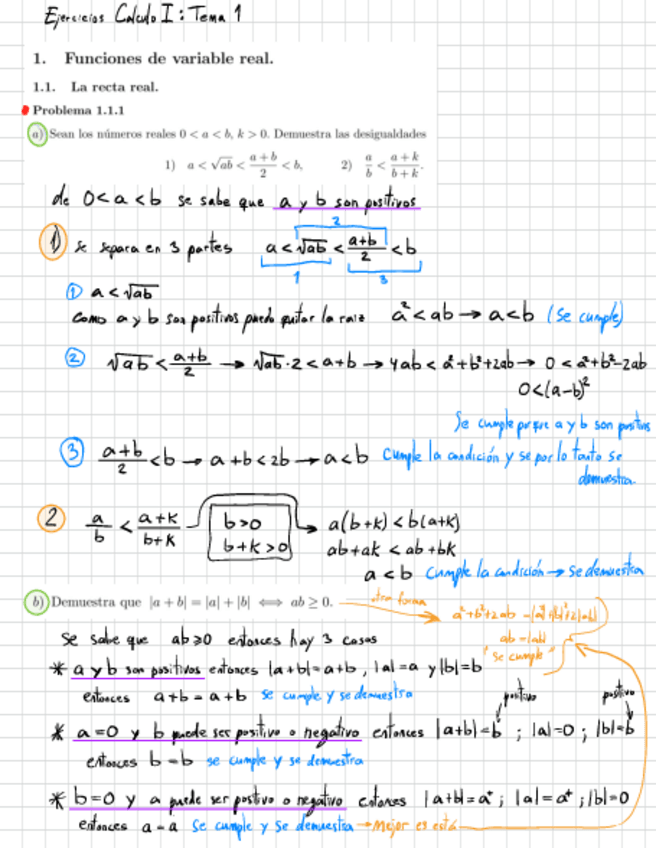 Ejercicios Calculo I: Tema 1
1. Funciones de variable real.
1.1. La recta real.
Problema 1.1.1
a) Sean los números reales 0 < a < b, k > 0. Demuestra las desigualdades
1) a < √ab < (a+b)/2 < b, 2) a/b < (a+k)/(b+k).
de 0<a<b se sabe que a y b son positivos
1) se separa en 3 partes a < √ab < (a+b)/2 < b
2
1 3
① a < √ab
Como a y b son positivos puedo quitar la raiz a² < ab → a < b (se cumple)
② √ab < (a+b)/2 → √ab·2 < a+b → 4ab < a²+b²+2ab → 0 < a²+b²-2ab
0<(a-b)²
Se cumple porque a y b son positivos
③ (a+b)/2 < b → a+b < 2b → a<b Cumple la condición y se por lo tanto se
demuestra.
② a/b < (a+k)/(b+k) b>0 → a(b+k) < b(a+k)
b+k>0 ab+ak < ab+bk
a < b Cumple la condición → se demuestra
b) Demuestra que |a + b| = |a| + |b| ⟺ ab ≥ 0. otra forma
a²+b²+2ab = |a|²+|b|²+2|ab|
ab = |ab|
"se cumple"
Se sabe que ab≥0 entonces hay 3 casos
* a y b son positivos entonces |a+b|=a+b, |a|=a y |b|=b
entonces a+b = a+b se cumple y se demuestra
positivo positivo
* a=0 y b puede ser positivo o negativo entonces |a+b|=b ; |a|=0 ; |b|=b
entonces b=b se cumple y se demuestra
* b=0 y a puede ser postivo o negativo entonces |a+b|=a⁺ ; |a|=a⁺ ; |b|=0
entonces a=a se cumple y se demuestra → Mejor es esta